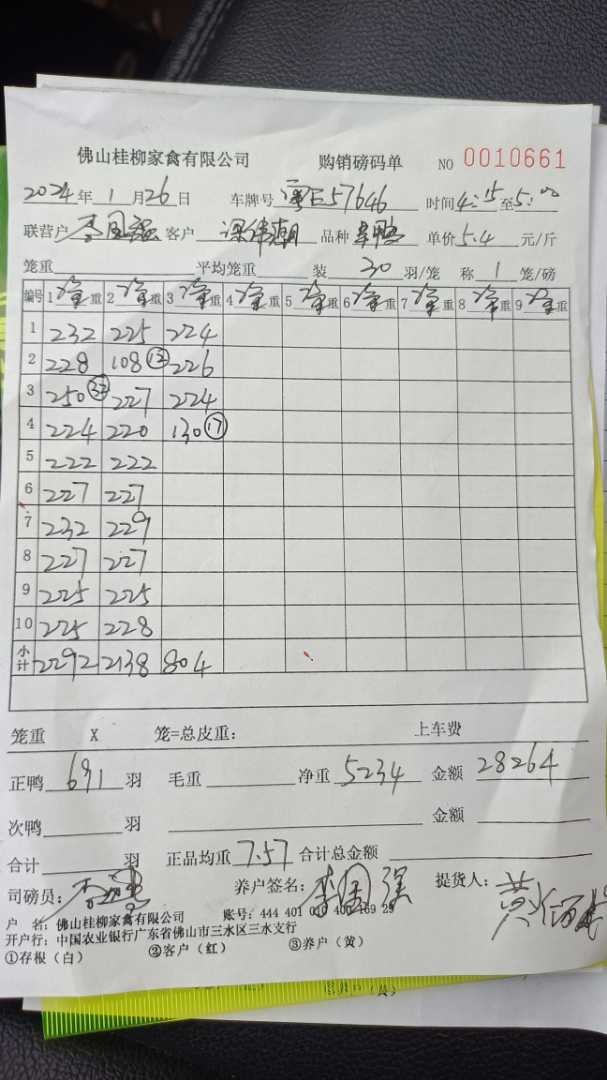 佛山桂柳家禽有限公司 购销磅码单 NO 0010661
2024年 1月26日 车牌号 粤E57646 时间4:15至5:00
联营户 李国强 客户 梁伟潮 品种 单价5.4元/斤
笼重 平均笼重 装 30 羽/笼 称 1 笼/磅
编号 1净重 2净重 3净重 4净重 5净重 6净重 7净重 8净重 9净重
1 232 225 224
2 228 108⑫ 226
3 250 227 224
4 224 220 130⑰
5 222 222
6 227 227
7 232 229
8 227 227
9 225 225
10 225 228
小计 2292 2138 804
笼重 X 笼=总皮重: 上车费
正鸭 691 羽 毛重 净重 5234 金额 28264
次鸭 羽 金额
合计 羽 正品均重 7.57 合计总金额
司磅员: 养户签名: 李国强 提货人:
户 名: 佛山桂柳家禽有限公司 账号: 444 401 010 400 169 29
开户行: 中国农业银行广东省佛山市三水区三水支行
①存根(白) ②客户(红) ③养户(黄)